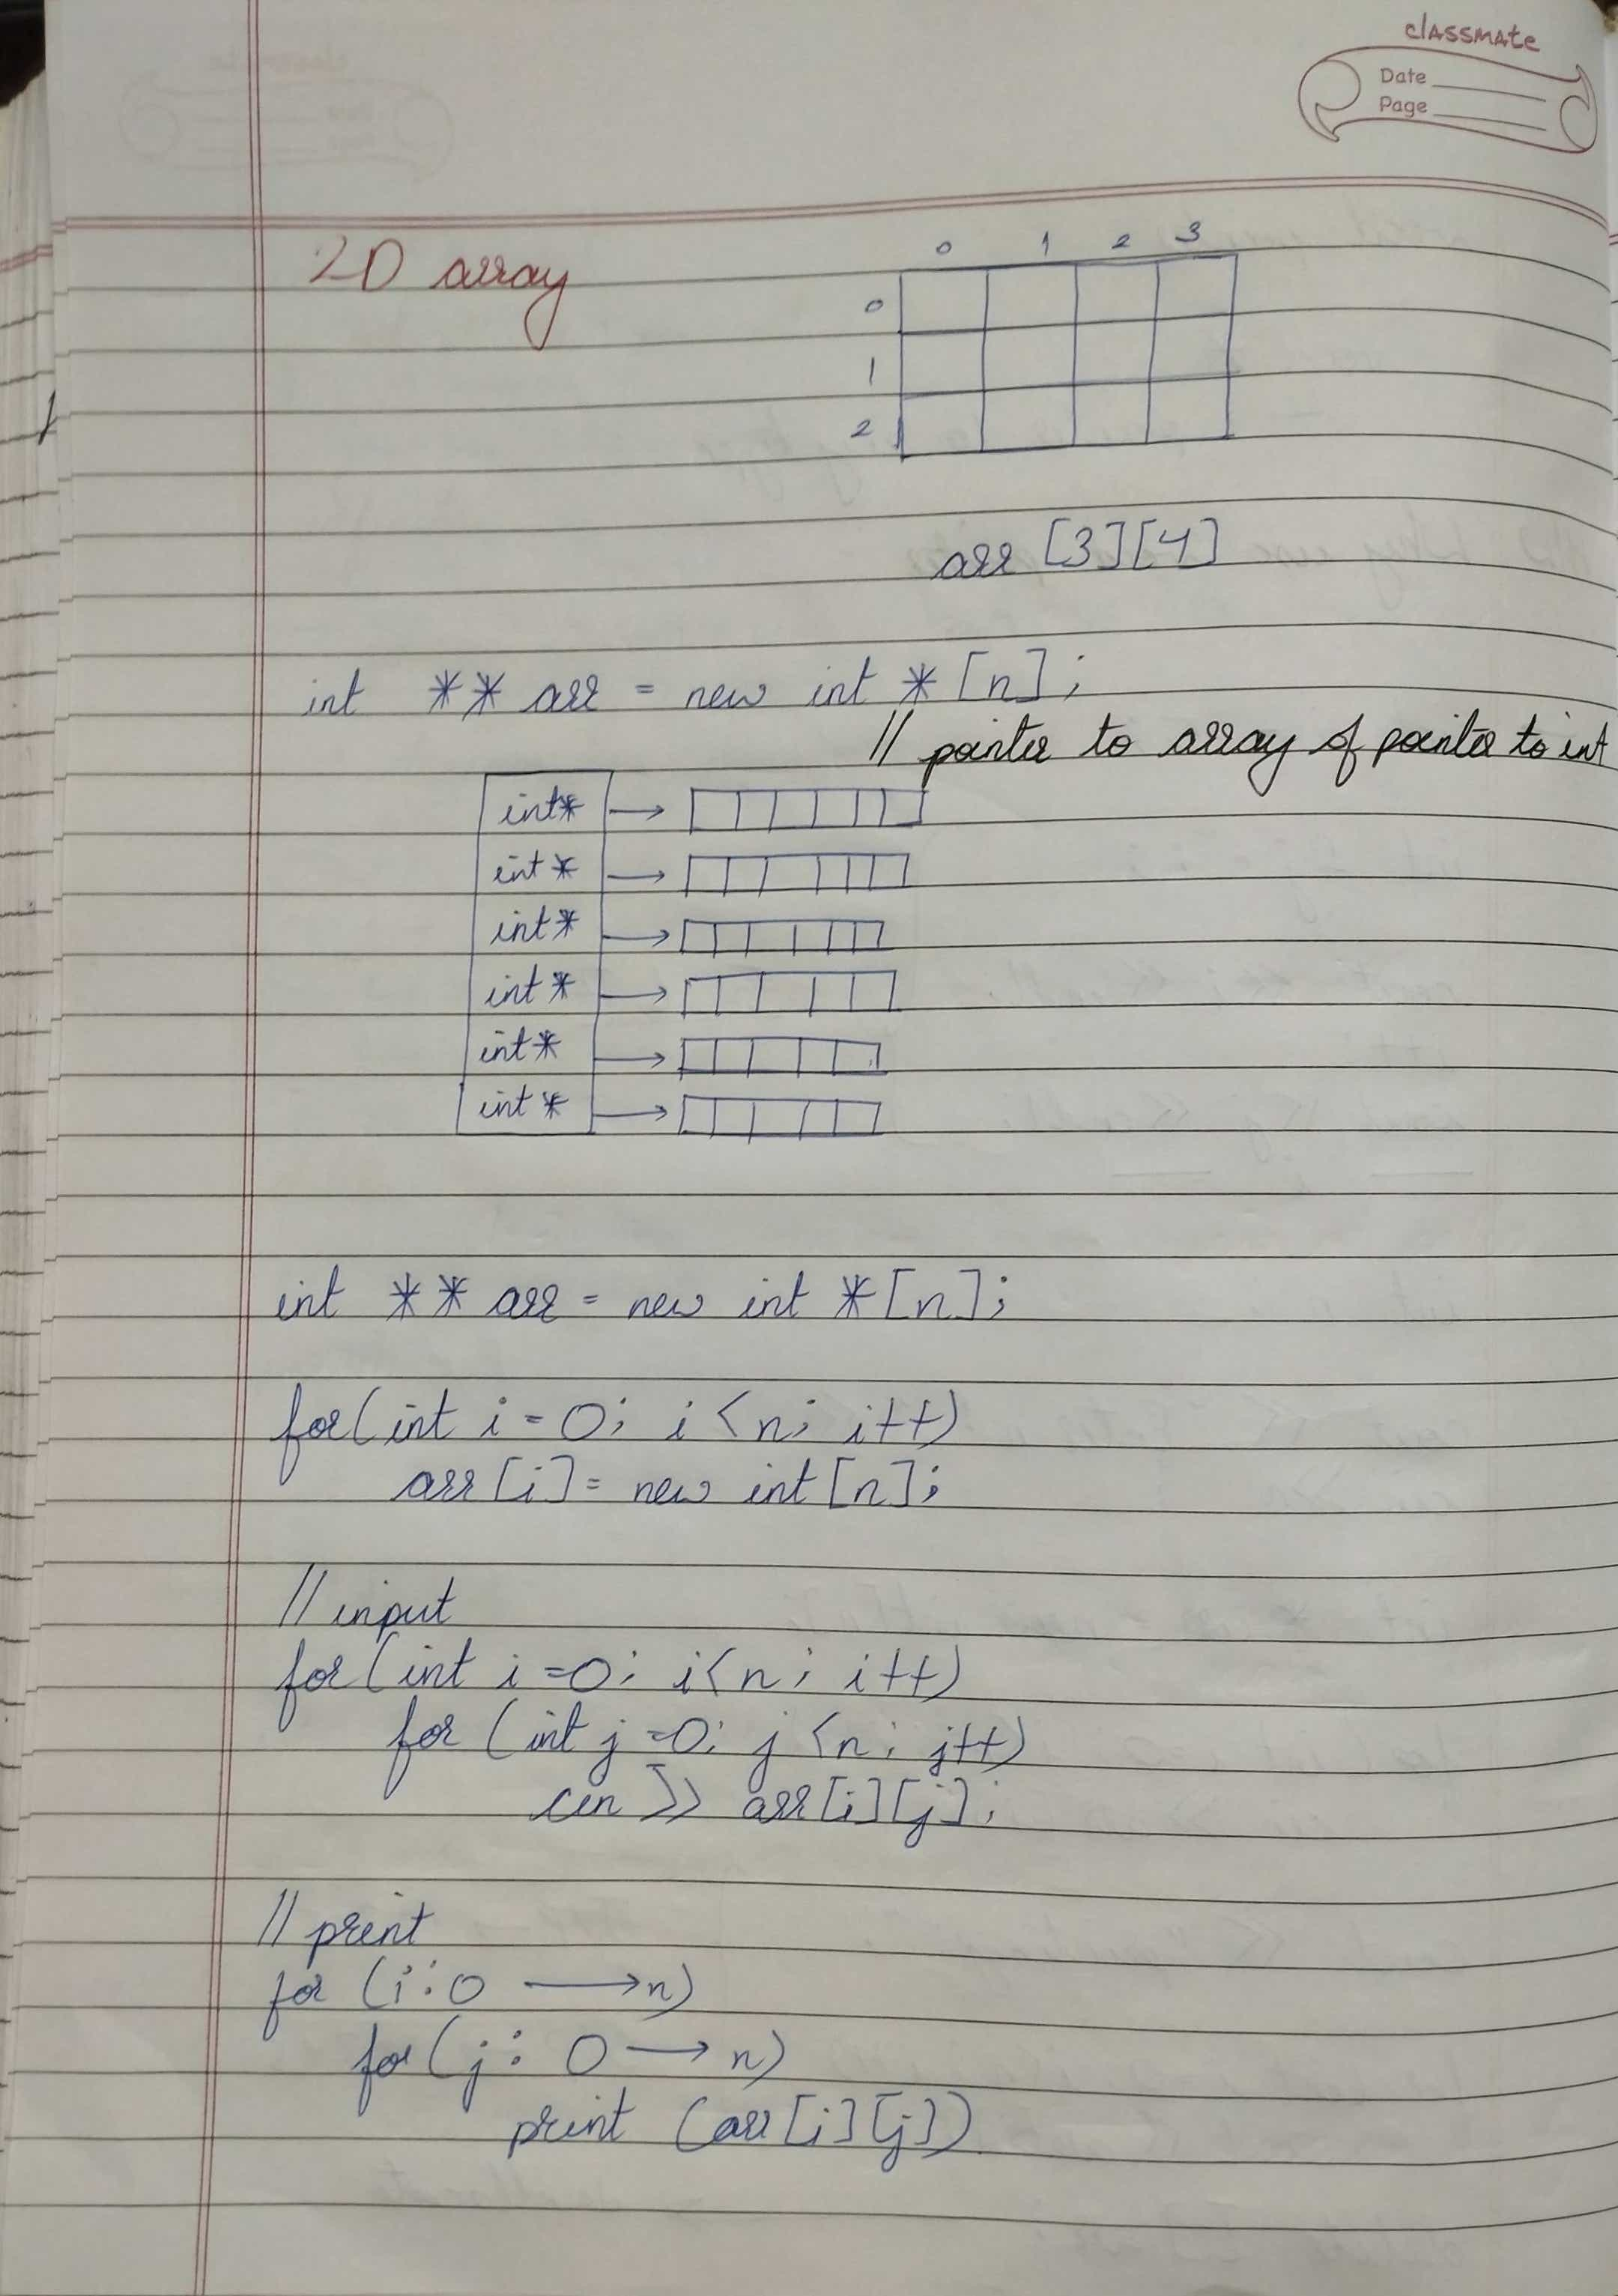 classmate
Date
Page
2D array
0 1 2 3
0
1
2
arr [3][4]
int ** arr = new int *[n];
// pointer to array of pointer to int
int*
int*
int*
int*
int*
int*
int ** arr = new int *[n];
for(int i = 0; i < n; i++)
arr[i] = new int[n];
// input
for(int i = 0; i < n; i++)
for (int j = 0; j < n; j++)
cin >> arr[i][j];
// print
for (i : 0 ⟶ n)
for (j : 0 ⟶ n)
print (arr[i][j])